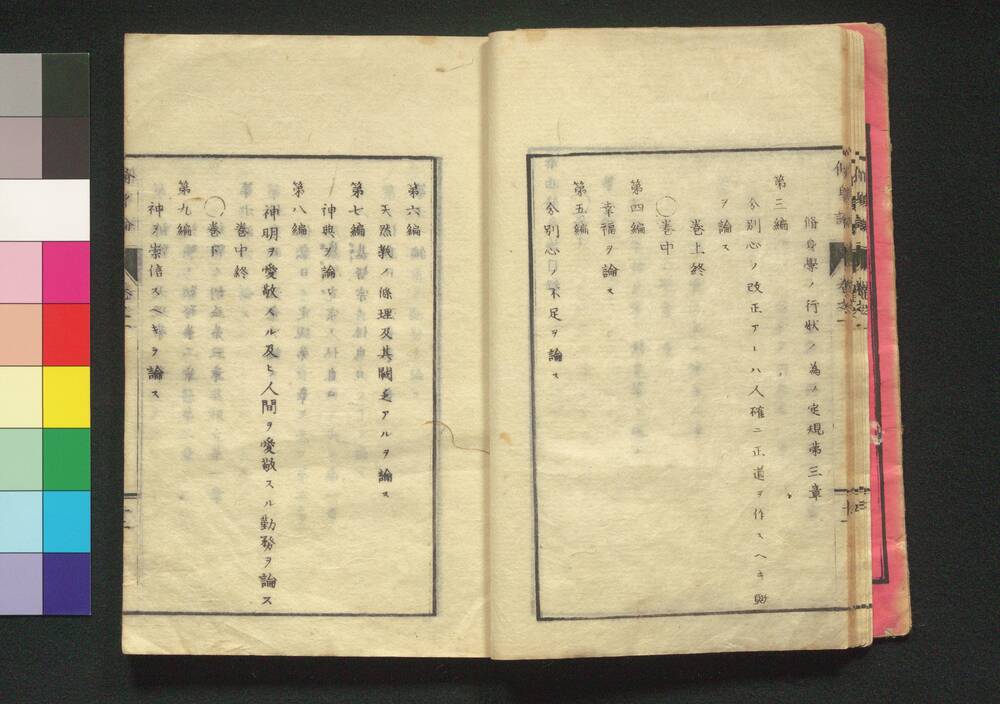 脩身學ノ行狀ノ為ノ定規第三章
第三編
分別心ノ改正アレハ人確ニ正道ヲ作スヘキ歟
ヲ論ス
巻上終
〇巻中
第四編
幸福ヲ論ス
第五編
分別心ノ不足ヲ論ス
第六編
天然教ノ條理及其闕乏アルヲ論ス
第七編
神典ヲ論ス
第八編
神明ヲ愛敬スル及ヒ人間ヲ愛敬スル勤務ヲ論ス
巻中終
〇巻下
第九編
神ヲ崇信スヘキヲ論ス